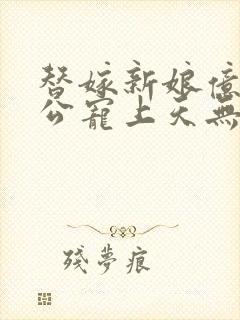 替嫁新娘億
公寵上天無
殘夢痕